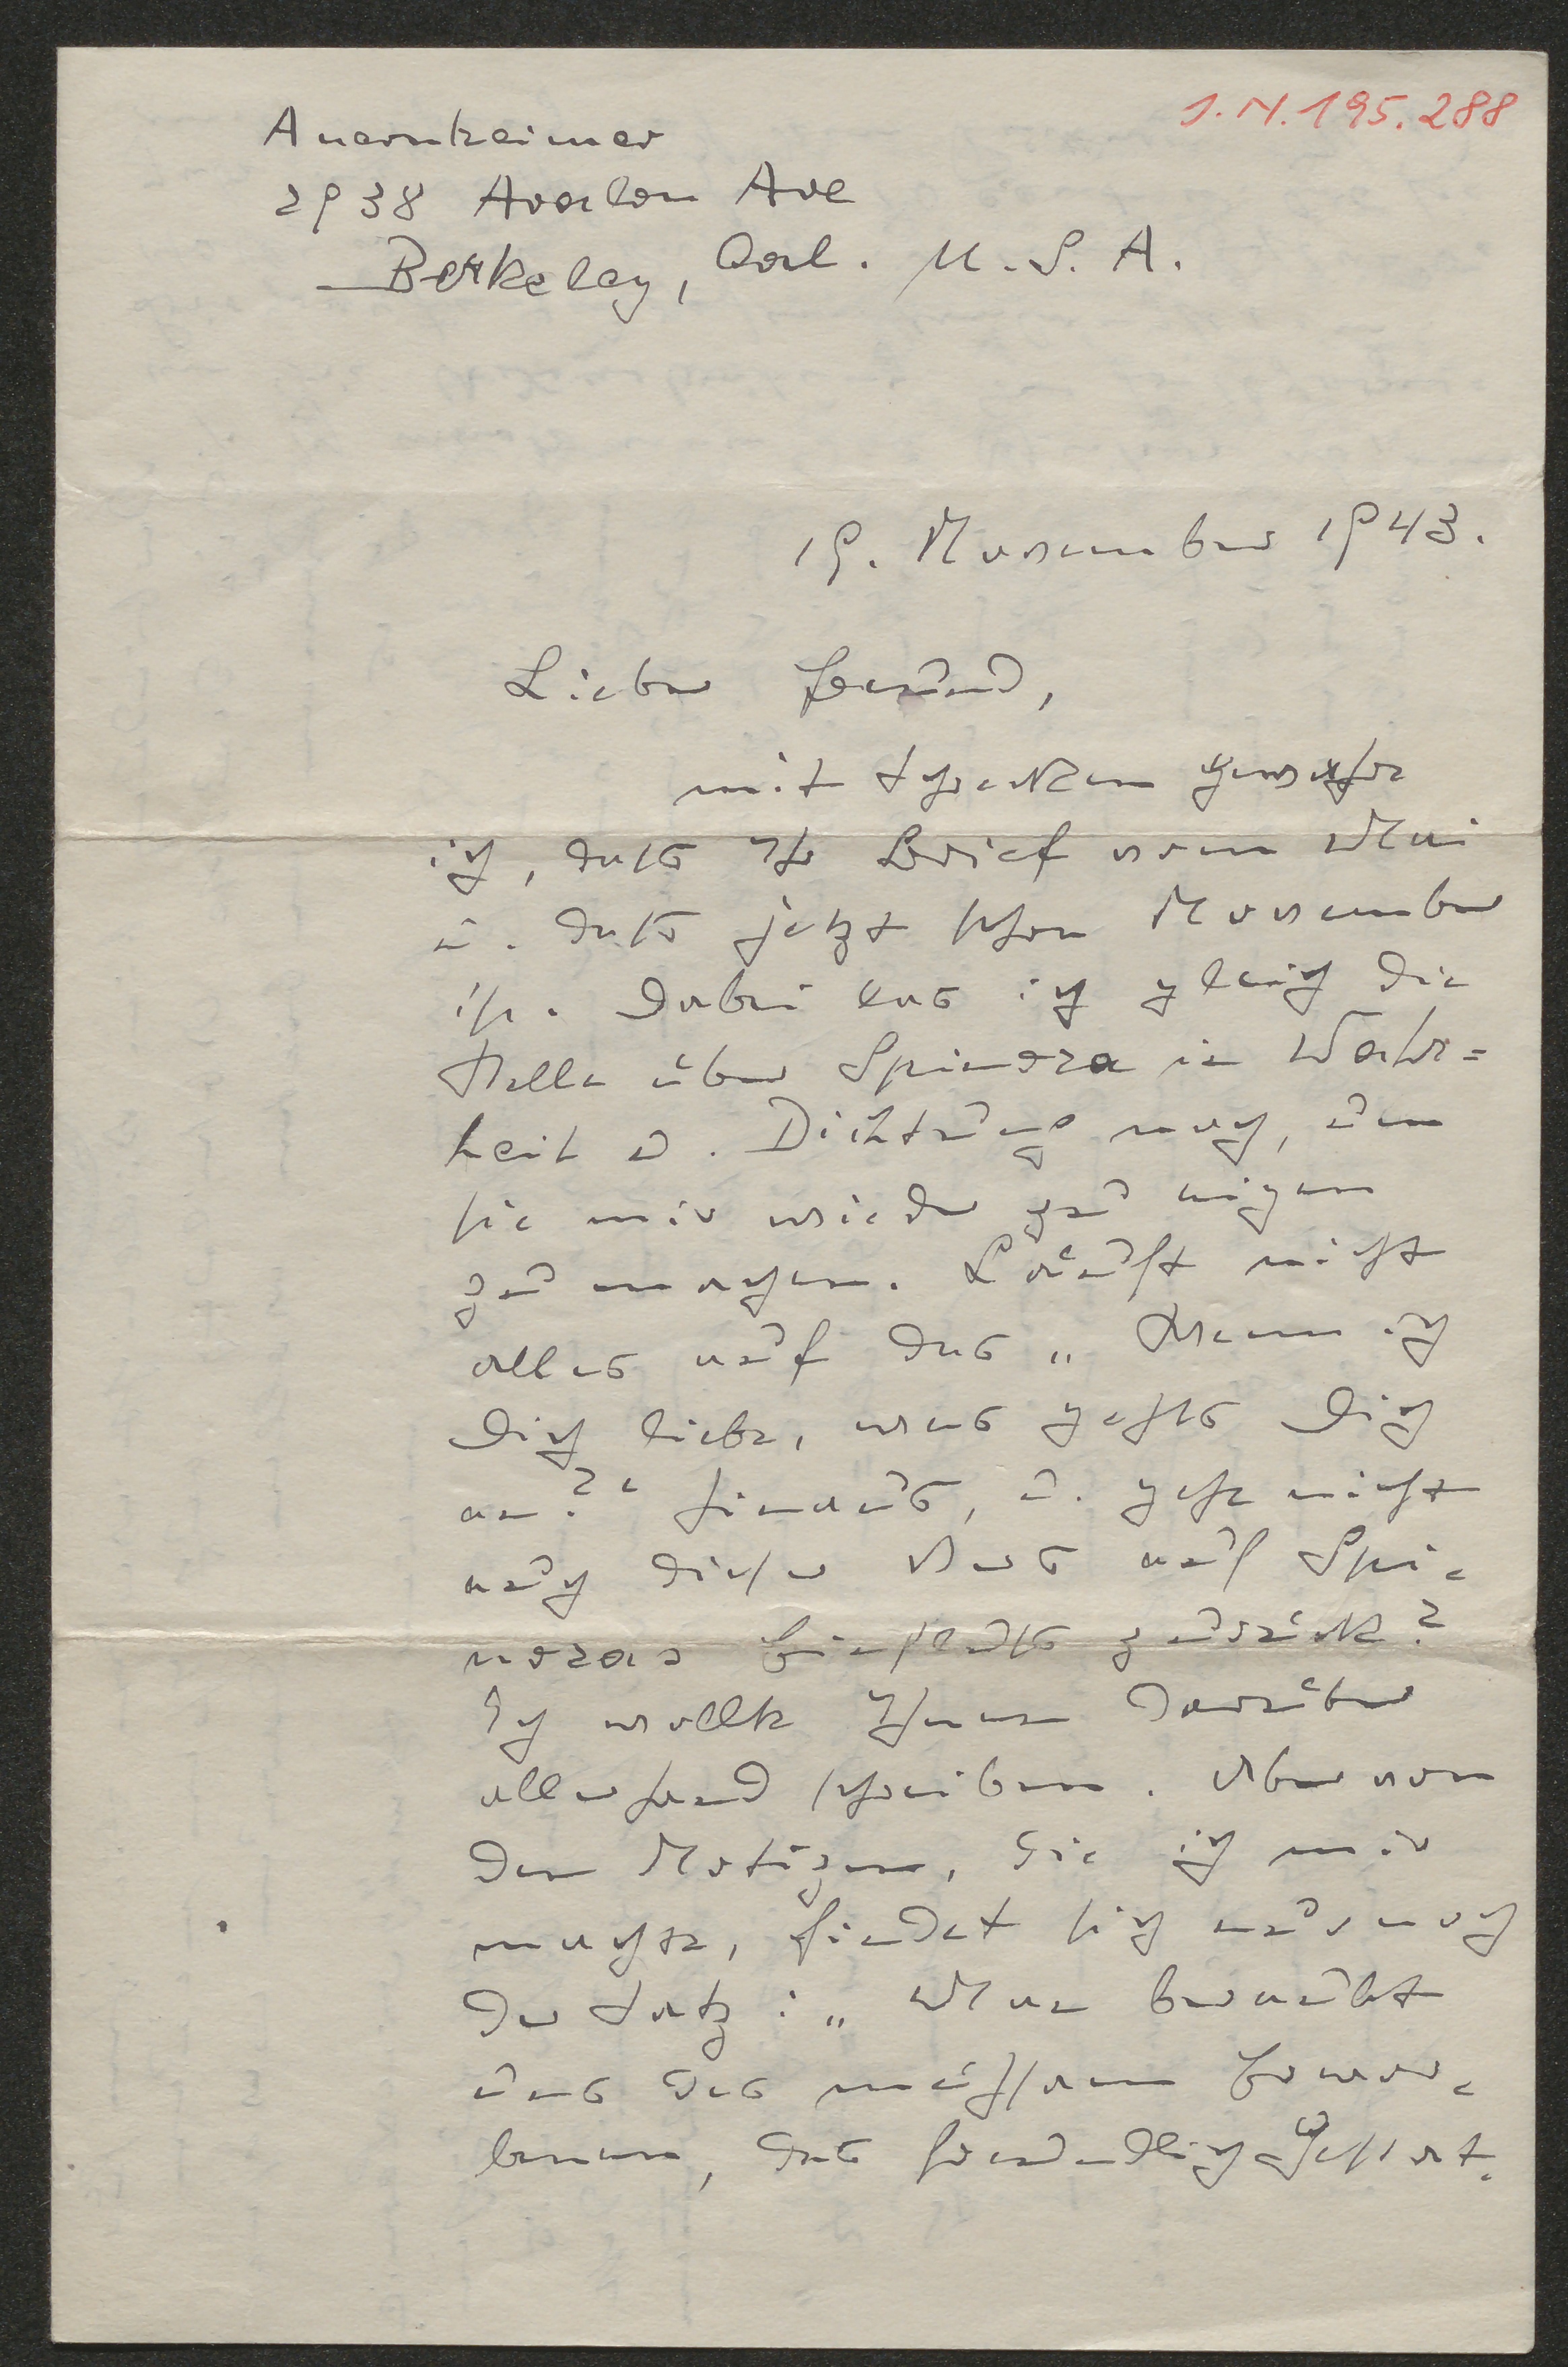 I.N.195.288
Auernheimer
2938 Avalon Ave
Berkeley, Cal. U.S.A.
19. November 1943.
Lieber Freund,
mit Schrecken gewahre
ich, daß Ihr Brief vom Mai
u. daß jetzt schon November
ist. Dabei las ich gleich die
Stelle über Spinoza in Wahr=
heit u. Dichtung nach, um
sie mir wieder zu eigen
zu machen. Läuft nicht
alles auf das „Wenn ich
Dich liebe, was gehts Dich
an?“ hinaus, u. geht nicht
auch dieser Vers auf Spi-
nozas Einfluß zurück?
Ich wollte Ihnen darüber
allerhand schreiben. Aber von
den Notizen, die ich mir
machte, findet sich nur noch
der Satz: „Man beraubt
uns des mühsam Erwor-
benen, das freundlich Gestat-